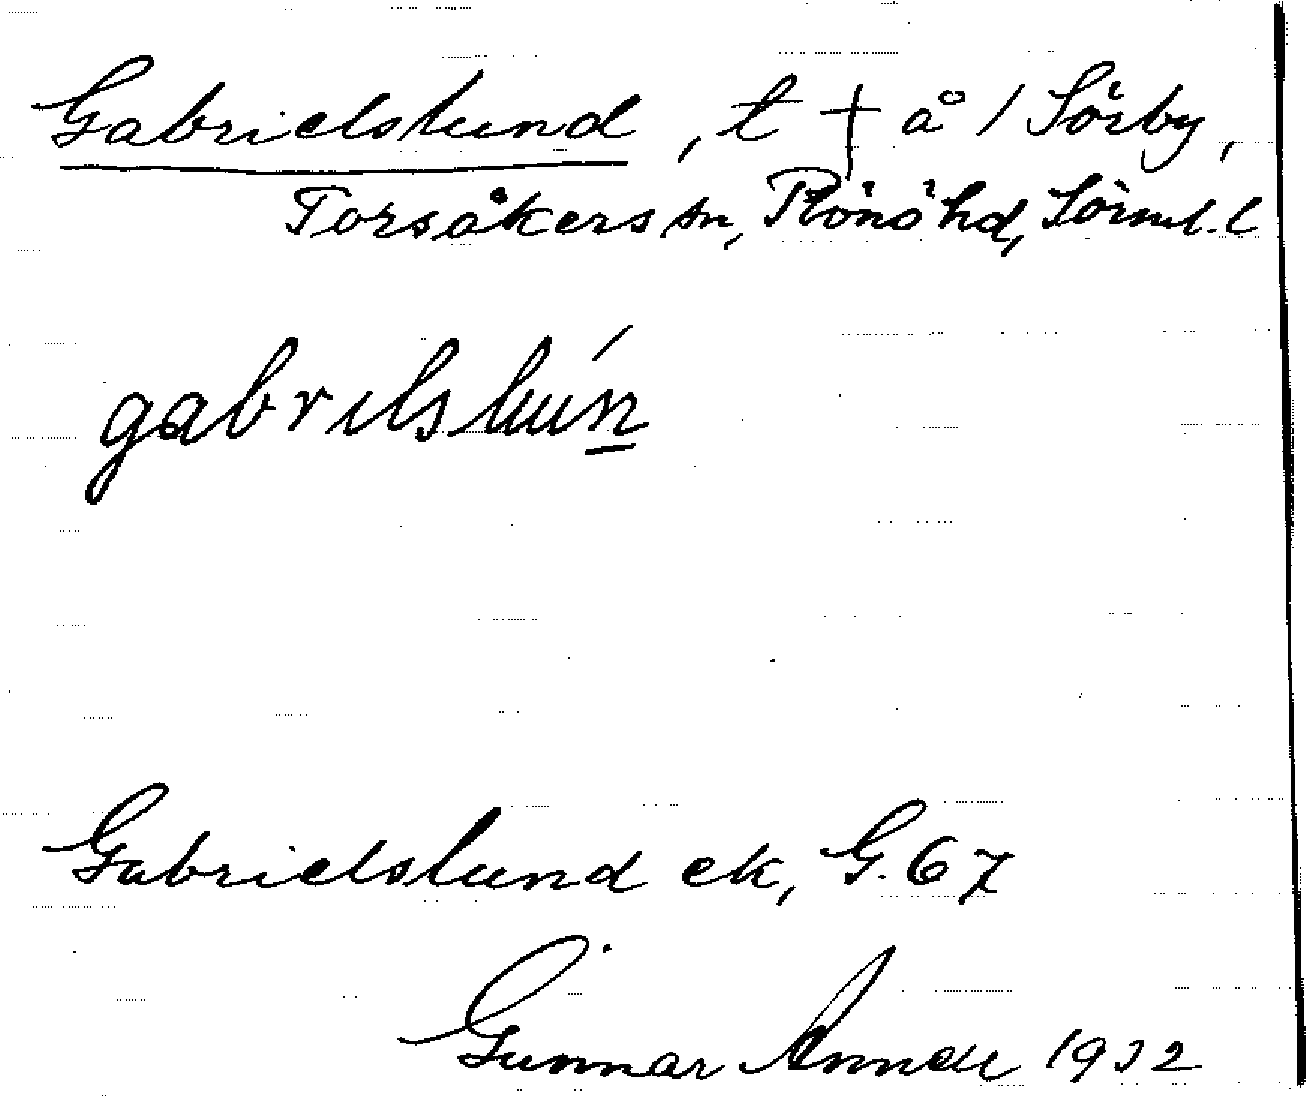 Gabrielslund, t † å / Sörby,
Torsåkers sn, Rönö hd, Sörml. l
gabrılslun´
Gabrielslund ek, G. 67
Gunnar 1932